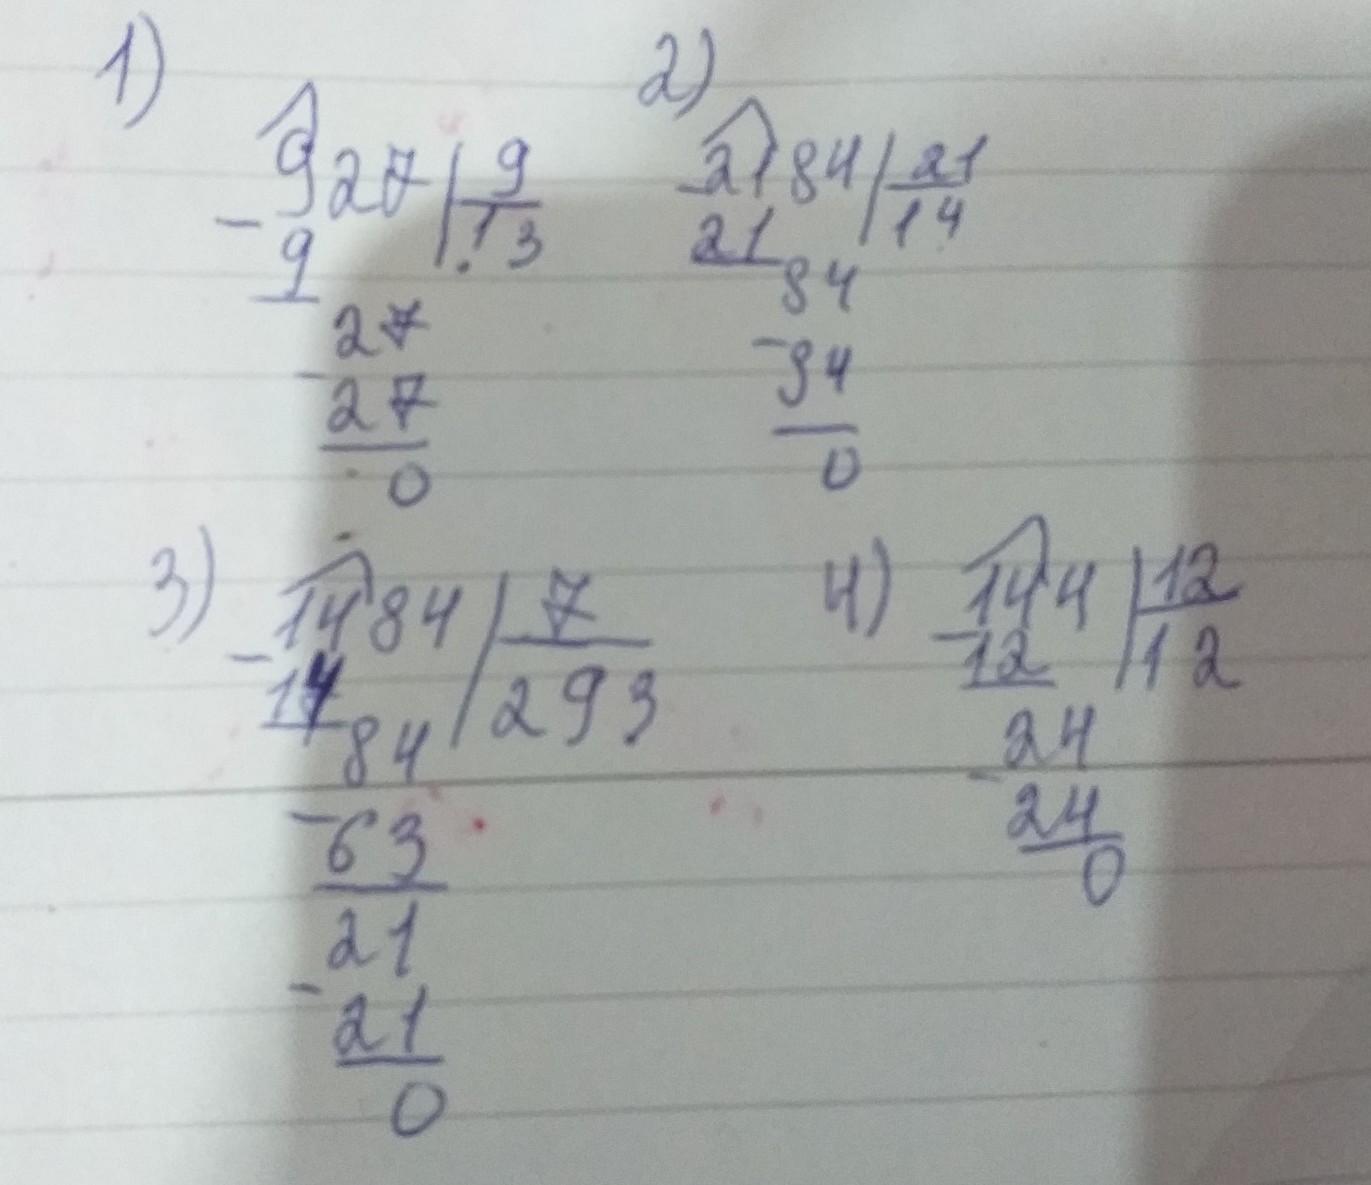 1)
927 | 9
- 9 | 13
27
- 27
0
2)
- 2184 | 21
21 | 14
84
- 84
0
3)
1484 | 7
- 14 | 293
84
- 63
21
- 21
0
4)
- 144 | 12
12 | 12
24
- 24
0